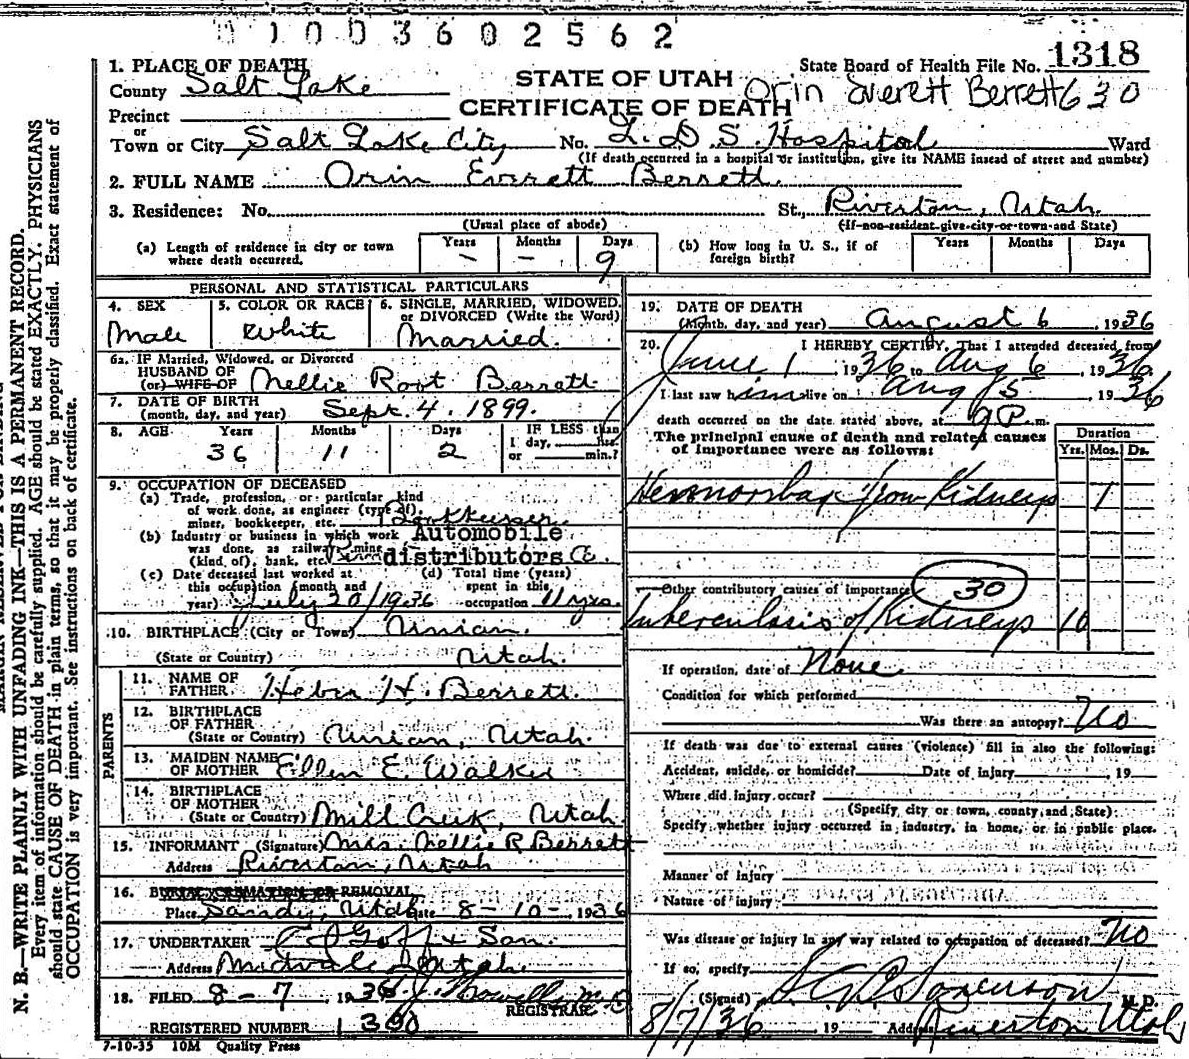 01003602562
1318
1. PLACE OF DEATH
State Board of Health File No.
County Salt Lake
STATE OF UTAH
CERTIFICATE OF DEATH
Orin Everett Berrett 630
Precinct
or
Town or City Salt Lake City No. L. D. S. Hospital Ward
(If death occurred in a hospital or institution, give its NAME insead of street and number)
2. FULL NAME Orin Everett Berrett.
3. Residence: No. St., Riverton, Utah.
(Usual place of abode) (If non-resident give city or town and State)
(a) Length of residence in city or town where death occurred. Years - Months - Days 9
(b) How long in U. S., if of foreign birth? Years Months Days
PERSONAL AND STATISTICAL PARTICULARS
4. SEX Male
5. COLOR OR RACE White
6. SINGLE, MARRIED, WIDOWED, or DIVORCED (Write the Word) Married.
6a. IF Married, Widowed, or Divorced
HUSBAND OF
(or) WIFE OF Nellie Root Berrett
7. DATE OF BIRTH
(month, day, and year) Sept. 4. 1899.
8. AGE Years 36 Months 11 Days 2
IF LESS than
1 day, hrs.
or min.?
9. OCCUPATION OF DECEASED
(a) Trade, profession, or particular kind
of work done, as engineer (type of),
miner, bookkeeper, etc. Bookkeeper.
(b) Industry or business in which work Automobile
was done, as railway, mine
(kind of), bank, etc. distributors Co.
(c) Date deceased last worked at
this occupation (month and
year) July 20/1936
(d) Total time (years)
spent in this
occupation 11 yrs.
10. BIRTHPLACE (City or Town) Union.
(State or Country) Utah.
PARENTS
11. NAME OF
FATHER Heber H. Berrett.
12. BIRTHPLACE
OF FATHER
(State or Country) Union, Utah.
13. MAIDEN NAME
OF MOTHER Ellen E. Walker
14. BIRTHPLACE
OF MOTHER
(State or Country) Mill Creek, Utah.
15. INFORMANT (Signature) Mrs. Nellie R Berrett
Address Riverton, Utah
16. BURIAL, CREMATION OR REMOVAL
Place Sandy, Utah Date 8-10-, 1936
17. UNDERTAKER Goff & Son.
Address Midvale Utah.
18. FILED 8-7 1936 M.D.
REGISTRAR
REGISTERED NUMBER 1300
7-10-35 10M Quality Press
19. DATE OF DEATH
(Month, day, and year) August 6 , 1936
20. I HEREBY CERTIFY, That I attended deceased from
June 1 , 1936 to Aug 6 , 1936
I last saw him alive on Aug 5 , 1936
death occurred on the date stated above, at 9 P. m.
The principal cause of death and related causes
of importance were as follows:
Duration
Yrs. Mos. Ds.
Hemmorhag from Kidneys 1
Other contributory causes of importance 30
Tuberculosis of Kidneys 10
If operation, date of None
Condition for which performed
Was there an autopsy? No
If death was due to external causes (violence) fill in also the following:
Accident, suicide, or homicide? Date of injury , 19
Where did injury occur?
(Specify city or town, county and State)
Specify whether injury occurred in industry, in home, or in public place.
Manner of Injury
Nature of injury
Was disease or injury in any way related to occupation of deceased? No
If so, specify
(Signed) Sorenson M.D.
8/7/36 19 Address Riverton Utah
N. B.—WRITE PLAINLY WITH UNFADING INK—THIS IS A PERMANENT RECORD.
Every item of information should be carefully supplied. AGE should be stated EXACTLY. PHYSICIANS
should state CAUSE OF DEATH in plain terms, so that it may be properly classified. Exact statement of
OCCUPATION is very important. See instructions on back of certificate.